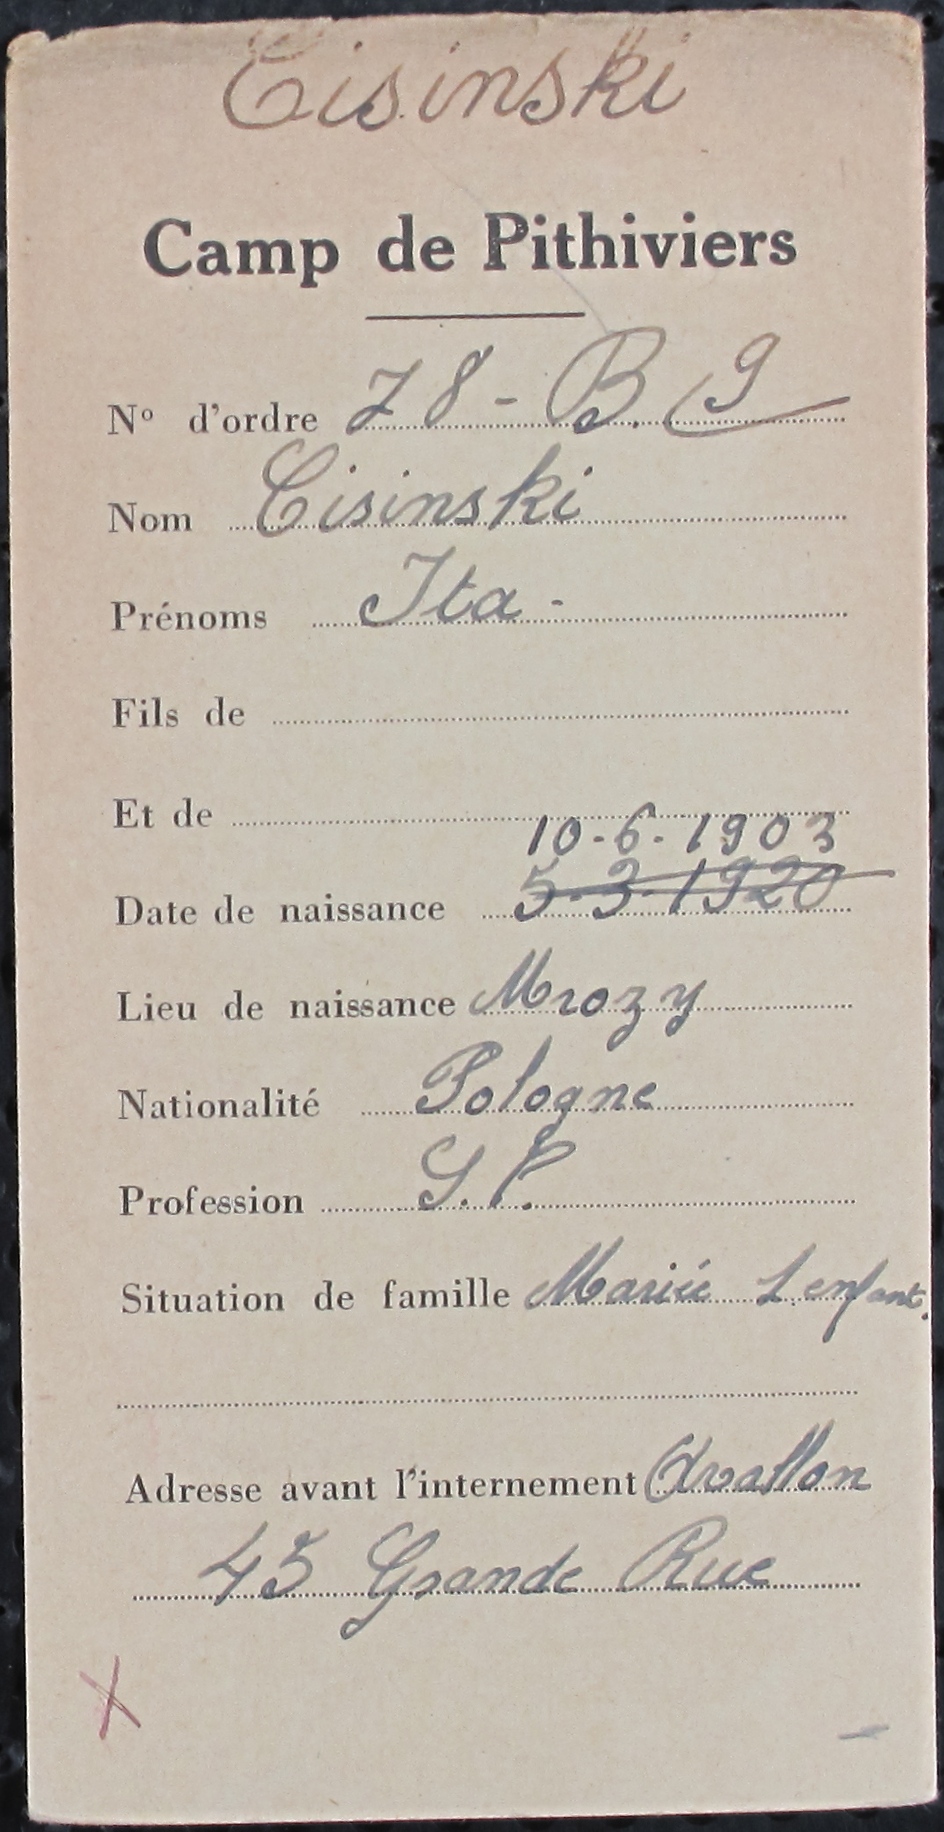 Cisinski
Camp de Pithiviers
Nº d'ordre 78 - B. 9
Nom Cisinski
Prénoms Ita -
Fils de
Et de
10-6-1903
Date de naissance 5-3-1920
Lieu de naissance Mrozy
Nationalité Pologne
Profession S.P.
Situation de famille Mariée 1 enfant.
Adresse avant l'internement Avallon
45 Grande Rue
X